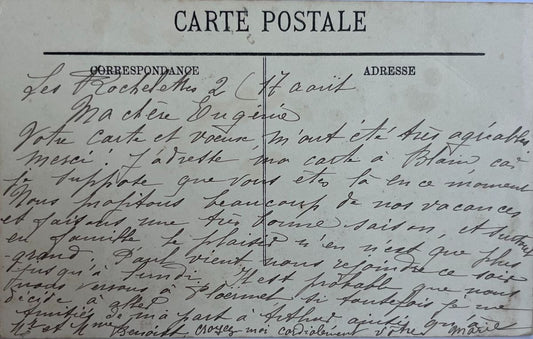 CARTE POSTALE
CORRESPONDANCE
ADRESSE
Les Rochelettes 2 (17 août
Ma chère Eugénie
Votre carte et voeux, m'ont été très agréables
merci. J'adresse ma carte à Blain car
je suppose que vous êtes là en ce moment
Nous profitons beaucoup de nos vacances
et faisons une très bonne saison, et surtout
en famille le plaisir n'en n'est que plus
grand. Paul vient nous rejoindre ce soir
jusqu'à lundi. Il est probable que nous
vous verrons à Ploermel, si toutefois je me
décide à aller
Amitiés de ma part à Arthur ainsi qu'à
Mr et Mme Benoist, croyez-moi cordialement votre Marie